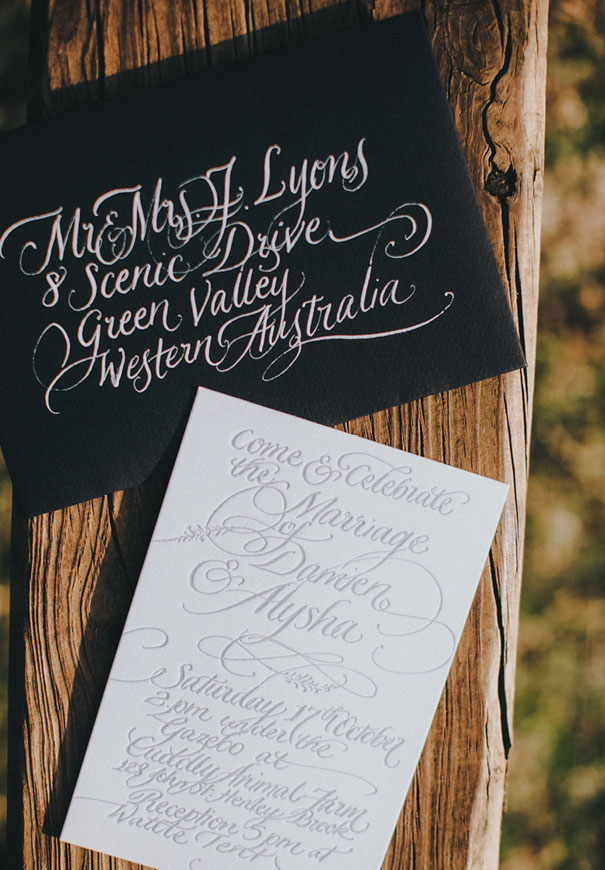 Mr & Mrs. J. Lyons
8 Scenic Drive
Green Valley
Western Australia
Come & Celebrate
the Marriage
of
Damien
& Alysha
Saturday 17th October
2pm under the
Gazebo at
Cuddly Animal Farm
123 John St. Henley Brook
Reception 5pm at
Wattle